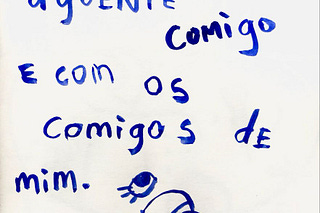 aguENTE
comigo
E com os
comigos dE
mim.